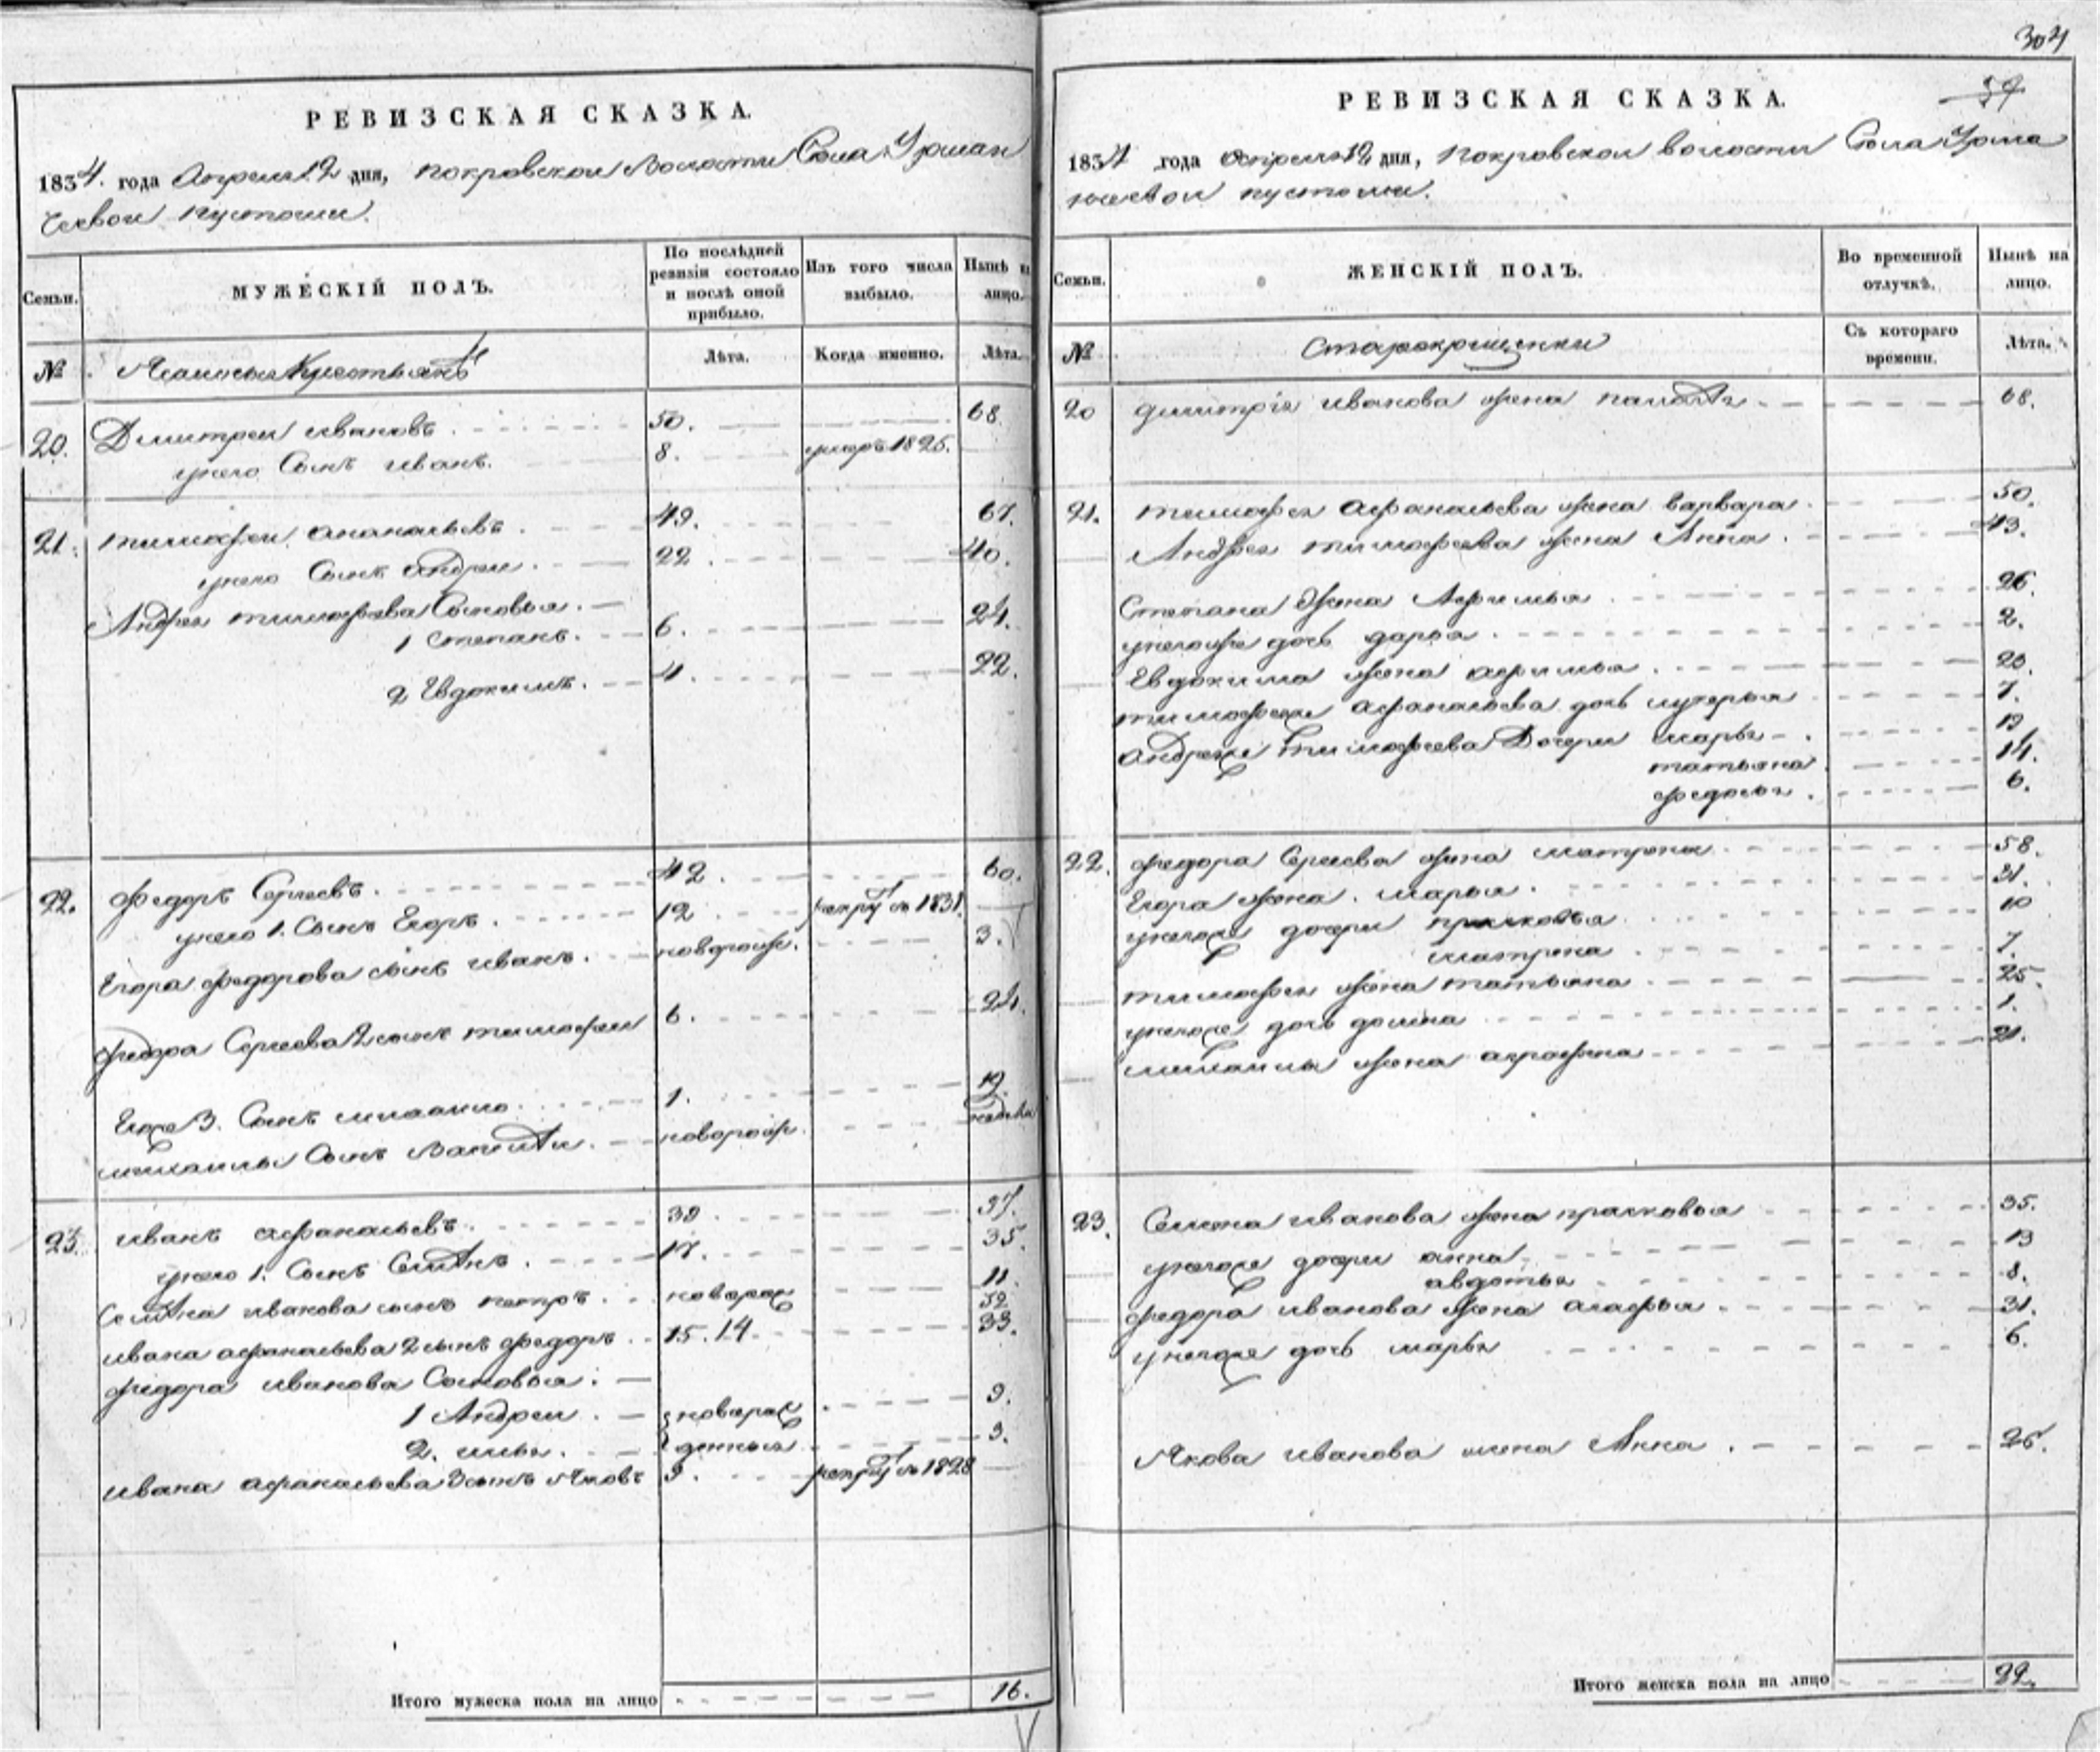 304
РЕВИЗСКАЯ СКАЗКА.
1834. года Апреля 12 дня, покровской Волости Села Урман
чеевой пустоши.
Семьи.
МУЖЕСКІЙ ПОЛЪ.
По послѣдней ревизіи состояло и послѣ оной прибыло.
Изъ того числа выбыло.
Нынѣ на лицо.
№
Лѣта.
Когда именно.
Лѣта.
20. Дмитреи ивановъ. 50. 68
унего Сынъ иванъ. 8. умеръ 1825.
21. тимофеи ананьевъ 49. 67.
унего Сынъ андреи. 22. 40.
Андрея тимофеева Сыновья.
1 степанъ. 6. 24.
2 Евдокимъ. 4. 22.
22. федоръ Сергеевъ. 42. 60.
унего 1. Сынъ Егоръ. 12 1831.
Егора федорова сынъ иванъ. новорож. 3.
федора Сергеева 2 сынъ тимофеи 6. 24.
Егоже 3. Сынъ михаило 1. 19.
михаилы Сынъ новорож. недели
23. иванъ афанасьевъ. 39 57.
унего 1. Сынъ Семёнъ. 17. 35.
Семёна иванова сынъ петръ. новорож 11.
32
ивана афанасьева 2 сынъ федоръ 15. 14. 33.
федора иванова Сыновья.
1 Андреи. новорож 9.
2. илья. денныя 3.
ивана афанасьева 3 сынъ Яковъ 9. 1828
Итого мужеска пола на лицо 16.
РЕВИЗСКАЯ СКАЗКА.
54
1834 года апреля 12 дня, покровской волости Села Урма
нчеевой пустоши.
Семьи.
ЖЕНСКІЙ ПОЛЪ.
Во временной отлучкѣ.
Нынѣ на лицо.
№
Старокрещенки
Съ котораго времени.
Лѣта.
20 димитрія иванова жена 68.
21. тимофея афанасьева жена варвара 50.
Андрея тимофеева жена Анна. 43.
Степана жена Афимья 26.
унегоже дочь дарья. 2.
Евдокима жена афимья. 20.
тимофея афанасьева дочь лукерья 7.
андрея тимофеева Дочери марья 19
татьяна 14.
федосья. 6.
22. федора Сергеева жена матрена 58.
Егора жена. марья. 31.
унегоже дочери прасковья 10
матрена 7.
тимофея жена татьяна 25.
унегоже дочь домна 1.
михаилы жена аграфена 21.
23. Семена иванова жена прасковья 35.
унегоже дочери анна 13
авдотья 8.
федора иванова жена агафья 31.
унегоже дочь марья 6.
Якова иванова жена Анна. 26.
Итого женска пола на лицо 22.